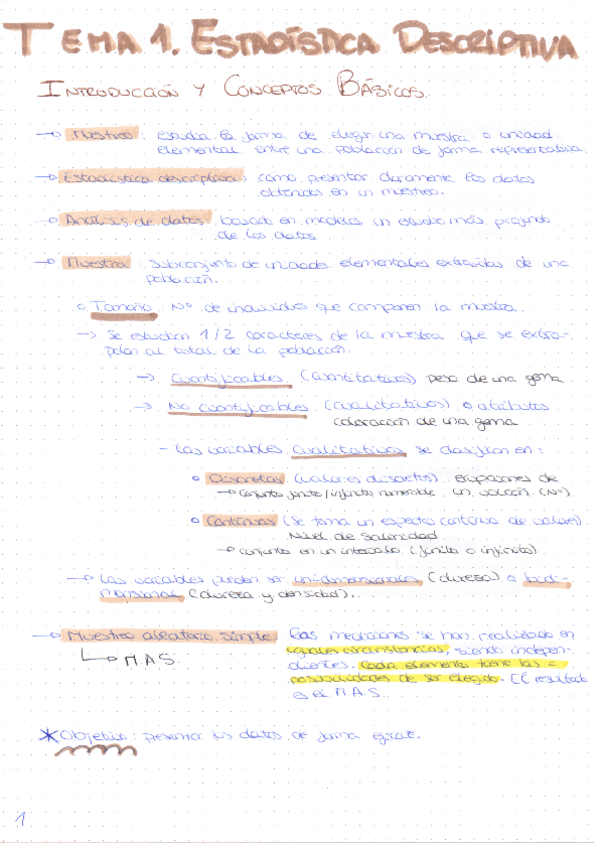 TEMA 1. ESTADÍSTICA DESCRIPTIVA
INTRODUCCIÓN Y CONCEPTOS BÁSICOS.
→ Muestreo: estudia la forma de elegir una muestra o unidad
elemental entre una población de forma representativa.
→ Estadística descriptiva: como presentar claramente los datos
obtenidos en un muestreo.
→ Análisis de datos: basado en modelos un estudio más profundo
de los datos
→ Muestra: Subconjunto de unidades elementales extraídas de una
población.
○ Tamaño Nº de individuos que componen la muestra.
→ Se estudian 1/2 caracteres de la muestra que se extra-
polan al total de la población.
→ Cuantificables (cuantitativos) peso de una gema
→ No cuantificables (cualitativos) o atributos
coloración de una gema
- Las variables cualitativas se clasifican en:
○ Discretas (valores discretos). erupciones de
→ conjunto finito/infinito numerable un volcán (Nº)
○ Continuas (se toma un espectro continuo de valores)
Nivel de salinidad
→ conjunto en un intervalo (finito o infinito)
→ Las variables pueden ser unidimensionales (dureza) o bidi-
mensional (dureza y densidad)..
→ Muestreo aleatorio simple: las mediciones se han realizado en
→ M.A.S. iguales circunstancias, siendo indepen-
dientes. Cada elemento tiene las =
posibilidades de ser elegido. El resultado
es el M.A.S..
* Objetivo: presentar los datos de forma gráf.
1